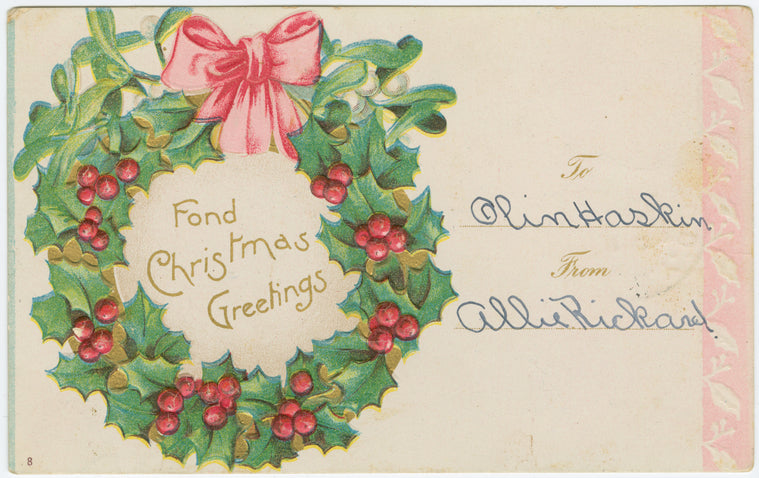 Fond
Christmas
Greetings
To
Olin Haskin
From
Allie Rickard.
8